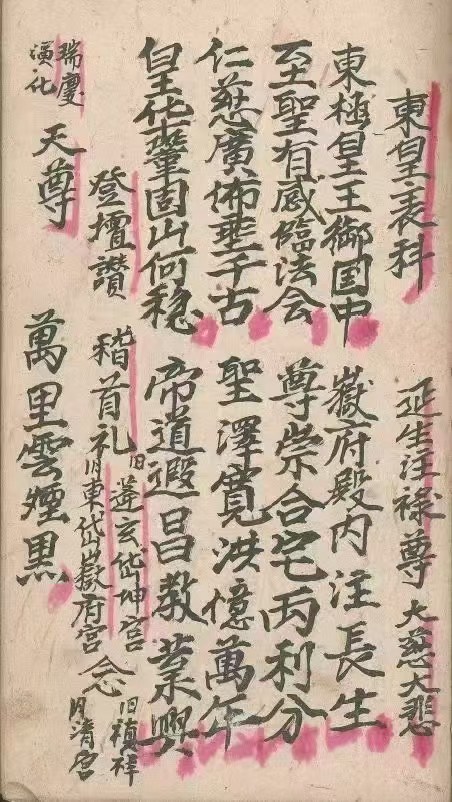 東皇表科　延生注禄尊　大慈大悲
東極皇王御国中　嶽府殿内注長生
至聖有感臨法会　尊崇合宅丙利分
仁慈廣佈垂千古　聖澤寬洪憶萬年
皇化鞏固山何穏　帝道遐昌教業興
登壇讚　稽首礼　玄岱坤宮　東岱嶽府宮　念　旧禎祥　清宮
瑞慶演化天尊　萬里雲煙黒